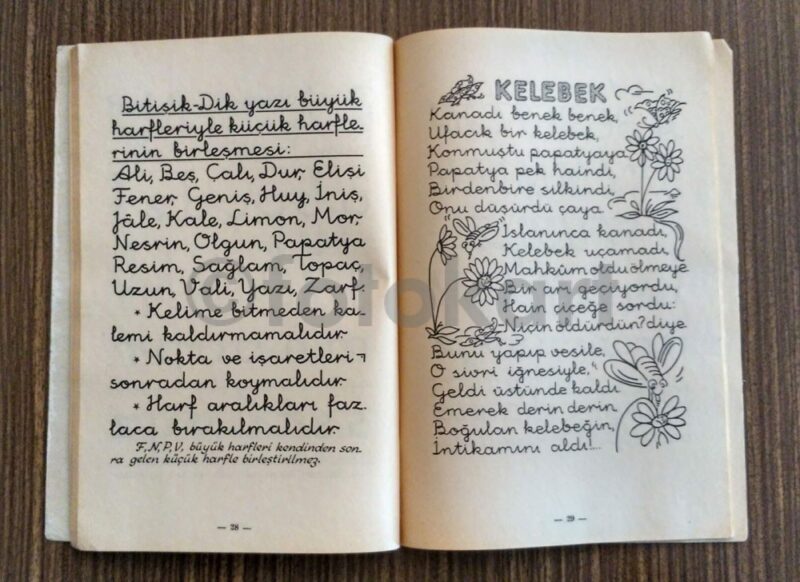 Bitişik-Dik yazı büyük
harfleriyle küçük harfle-
rinin birleşmesi:
Ali, Beş, Çalı, Dur, Elişi
Fener, Geniş, Huy, İniş,
Jâle, Kale, Limon, Mor,
Nesrin, Olgun, Papatya
Resim, Sağlam, Topaç,
Uzun, Vali, Yazı, Zarf.
* Kelime bitmeden ka-
lemi kaldırmamalıdır.
* Nokta ve işaretleri
sonradan koymalıdır.
* Harf aralıkları faz-
laca bırakılmalıdır.
F, N, P, V, büyük harfleri kendinden son-
ra gelen küçük harfle birleştirilmez.
— 28 —
KELEBEK
Kanadı benek benek,
Ufacık bir kelebek,
Konmuştu papatyaya.
Papatya pek haindi,
Birdenbire silkindi,
Onu düşürdü çaya.
Islanınca kanadı,
Kelebek uçamadı,
Mahkûm oldu ölmeye
Bin arı geçiyordu,
Hain çiçeğe sordu:
Niçin öldürdün? diye
Bunu yapıp vesile,
O sivri iğnesiyle,
Geldi üstünde kaldı
Emerek derin derin
Boğulan kelebeğin,
İntikamını aldı!...
— 29 —
©fotokart